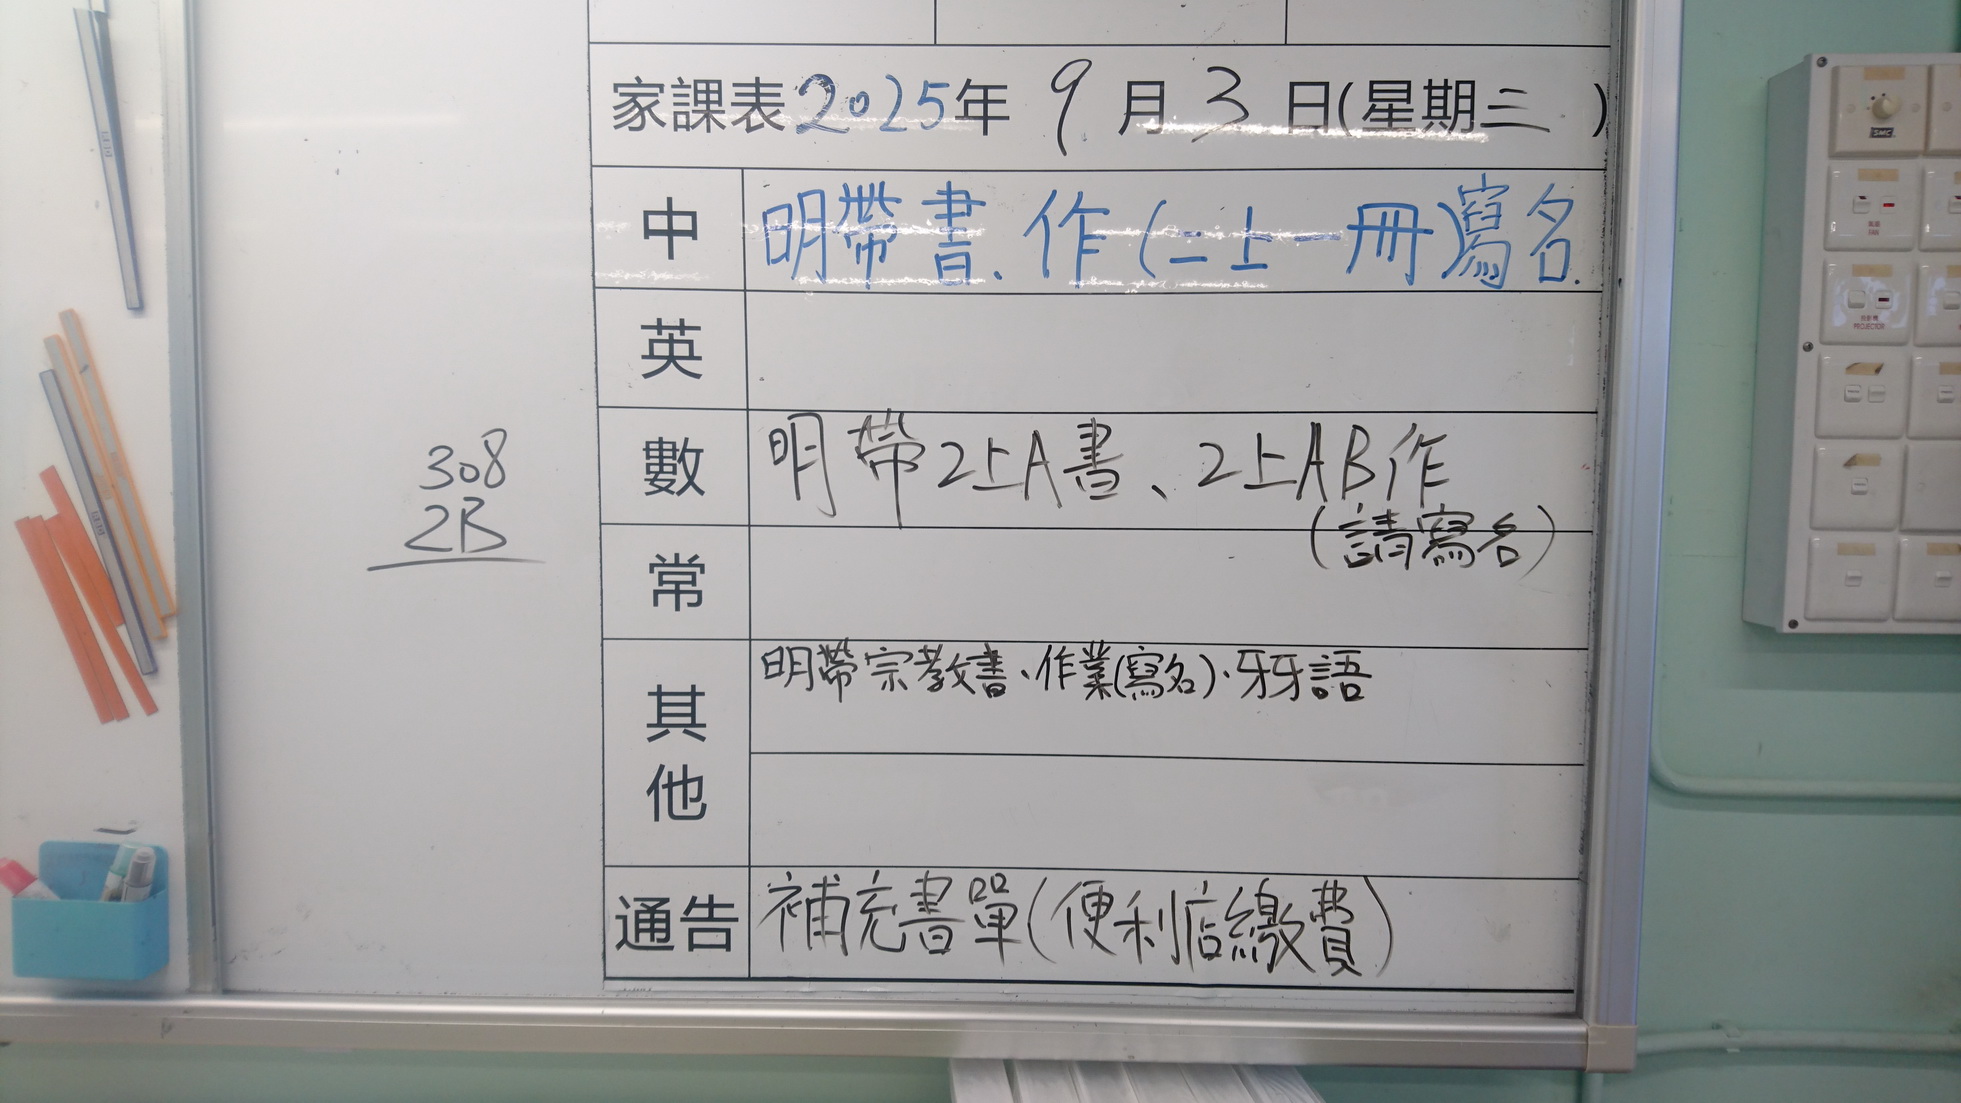 家課表2025年 9 月 3 日(星期三 )
中 明帶書、作(二上一冊)寫名.
英
數 明帶2上A書、2上AB作
(請寫名)
308
2B
常
其他 明帶宗教書、作業(寫名)、牙牙語
通告 補充書單(便利店繳費)
SMC
PROJECTOR